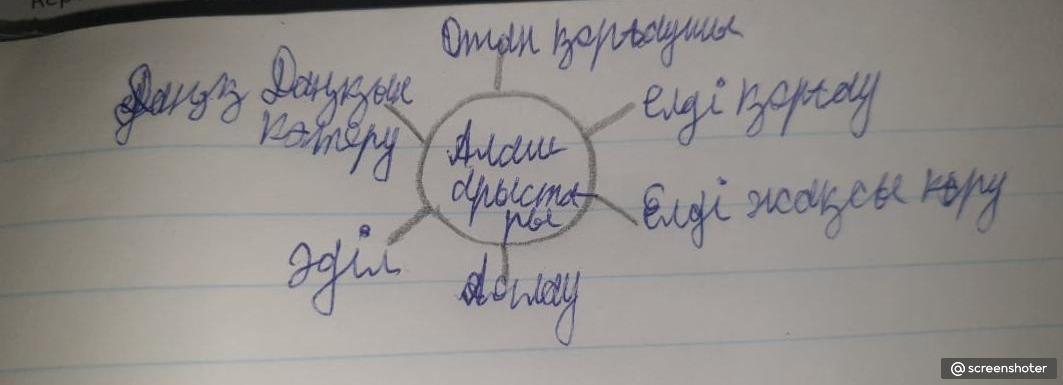 Отан қорғаушы
Даңқ Даңқын
көтеру
Елді қорғау
Алаш
арыста
ры
Елді жақсы көру
Әділ
screenshoter